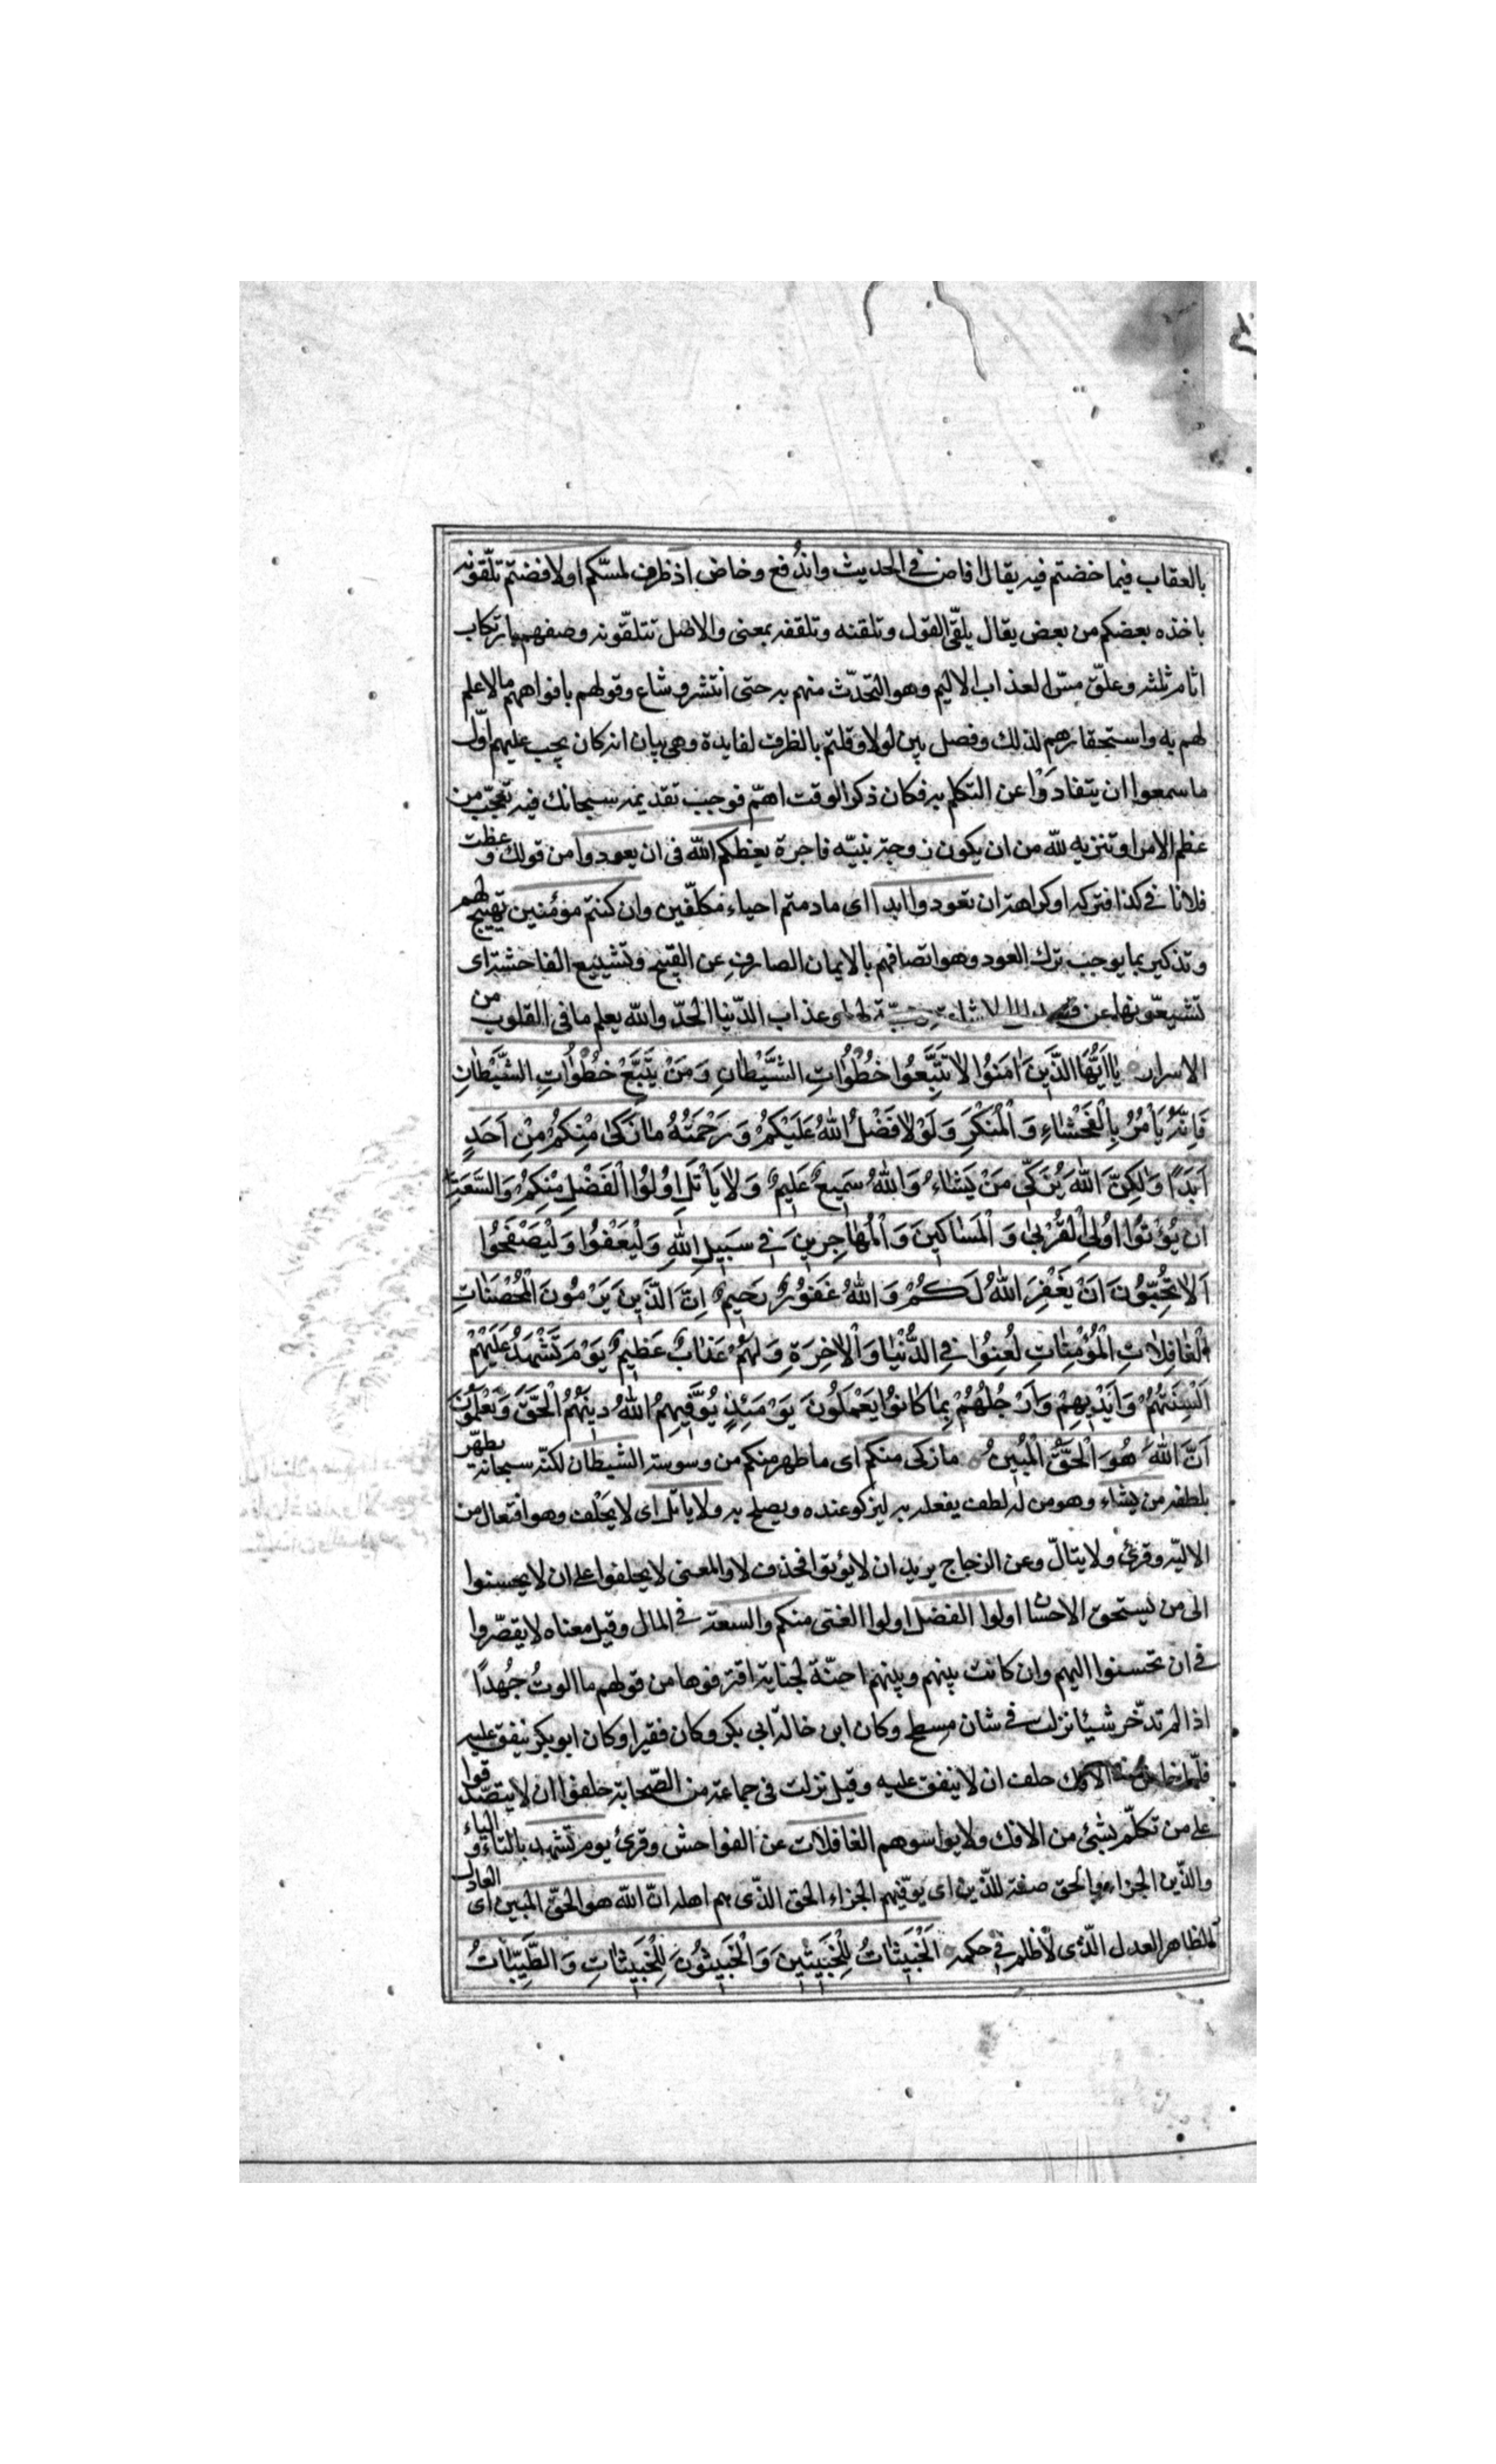 بالعقاب فيما خضتم فيه يقال افاض في الحديث واندفع وخاض اذ ظرف لمسّكم او لافضتم تلّقونه
ياخذه بعضكم من بعض يقال يلقّى القول وتلقنه وتلقفه بمعنى والاصل تتلقّونه وصفهم بارتكاب
اثام ثلثه وعلّق مسّ العذاب الاليم وهو التحدّث منهم به حتى انتشر وشاع وقولهم بافواههم ما لا علم
لهم به واستحقارهم لذلك وفصل بين لولا وقلتم بالظرف لفايدة وهي بيان انه كان يجب عليهم اوّل
ما سمعوا ان يتفادَوْا عن التكلم به فكان ذكر الوقت اهمّ فوجب تقديمه سبحانك فيه تعجّب من
عظم الامر او تنزيه للّه من ان يكون زوجة نبيّه فاجرة يعظكم اللّه فى ان يعودوا من قولك وعظت
فلانا في كذا فتركه او كراهة ان تعودوا ابدا اى ما دمتم احياء مكلّفين وان كنتم مؤمنين تهييج لهم
وتذكير بما يوجب ترك العود وهو اتصافهم بالايمان الصارف عن القبيح وتشييع الفاحشة اى
تشيعّونها عن عذاب الدّنيا الحدّ واللّه يعلم ما فى القلوب من
الاسرار يٰا اَيُّهَا الَّذِينَ اٰمَنُوا لاٰ تَتَّبَّعُوا خُطُوٰاتِ الشَّيْطٰانِ وَمَنْ يَتَّبَّعْ خُطْوٰاتِ الشَّيْطٰانِ
فَاِنَّهُ يَاْمُرُ بِالْفَحْشٰاءِ وَالْمُنْكَرِ وَلَوْلاٰ فَضْلُ اللّٰهُ عَلَيْكُمْ وَرَحْمَتُهُ مٰا زَكٰى مِنْكُمْ مِنْ اَحَدٍ
اَبَدًا وَلٰكِنَّ اللّٰهَ يُزَكِّى مَنْ يَشٰاءُ وَاللّٰهُ سَمِيعٌ عَلِيمٌ وَلاٰ يَاْتَلِ اُولُوا الْفَضْلِ مِنْكُمْ وَالسَّعَةِ
اَنْ يُؤْتُوا اُولِى الْقُرْبىٰ وَالْمَسٰاكِينَ وَالْمُهٰاجِرِينَ فِى سَبِيلِ اللّٰهِ وَلْيَعْفُوا وَلْيَصْفَحُوا
اَلاٰ تُحِبُّونَ اَنْ يَغْفِرَ اللّٰهُ لَكُمْ وَاللّٰهُ غَفُورٌ رَحِيمٌ اِنَّ الَّذِينَ يَرْمُونَ الْمُحْصَنٰاتِ
الْغٰافِلاٰتِ الْمُؤْمِنٰاتِ لُعِنُوا فِى الدُّنْيٰا وَالْاٰخِرَةِ وَلَهُمْ عَذٰابٌ عَظِيمٌ يَوْمَ تَشْهَدُ عَلَيْهِمْ
اَلْسِنَتُهُمْ وَاَيْدِيهِمْ وَاَرْجُلُهُمْ بِمٰا كٰانُوا يَعْمَلُونَ يَوْمَئِذٍ يُوَفِّيهِمُ اللّٰهُ دِينَهُمُ الْحَقَّ وَيَعْلَمُونَ
اَنَّ اللّٰهَ هُوَ الْحَقُّ الْمُبِينُ ما زكى منكم اى ما طهر منكم من وسوسة الشيطان لكنّه سبحانه يطهّر
بلطفه من يشاء وهو من له لطف يفعله به ليزكو عنده ويصلح به ولا ياتل اى لا يَحْلف وهو افتعال من
الاليّه وقرئ ولا يتالّ وعن الزجاج يريد ان لا يؤتوا فحذف لا والمعنى لا يحلفوا على ان لا يحسنوا
الى من يستحق الاحسان اولوا الفضل اولوا الغنى منكم والسعة في المال وقيل معناه لا يقصّروا
في ان تحسنوا اليهم وان كانت بينهم وبينهم احنّة لجناية اقترفوها من قولهم ما الوتُ جُهدًا
اذا لم تدّخر شيئا نزلت في شان مِسطح وكان ابن خالة ابي بكر وكان فقيرا وكان ابوبكر ينفق عليه
فلمّا خاض الافك حلف ان لا ينفق عليه وقيل نزلت فى جماعة من الصّحابة حلفوا ان لا يتصدّقوا
على من تكلّم بشئ من الافك ولا يواسوهم الغافلات عن الفواحش وقرئ يوم تشهد بالتاء والياء
والدّين الجزاء والحق صفة للدّين اى يوفّيهم الجزاء الحق الذّى هم اهله انّ اللّه هو الحقّ المبين اى العادل
الظاهر العدل الذّى لا ظلم في حكمه اَلْخَبِيثٰاتُ لِلْخَبِيثِينَ وَالْخَبِيثُونَ لِلْخَبِيثٰاتِ وَالطَّيِّبٰاتُ